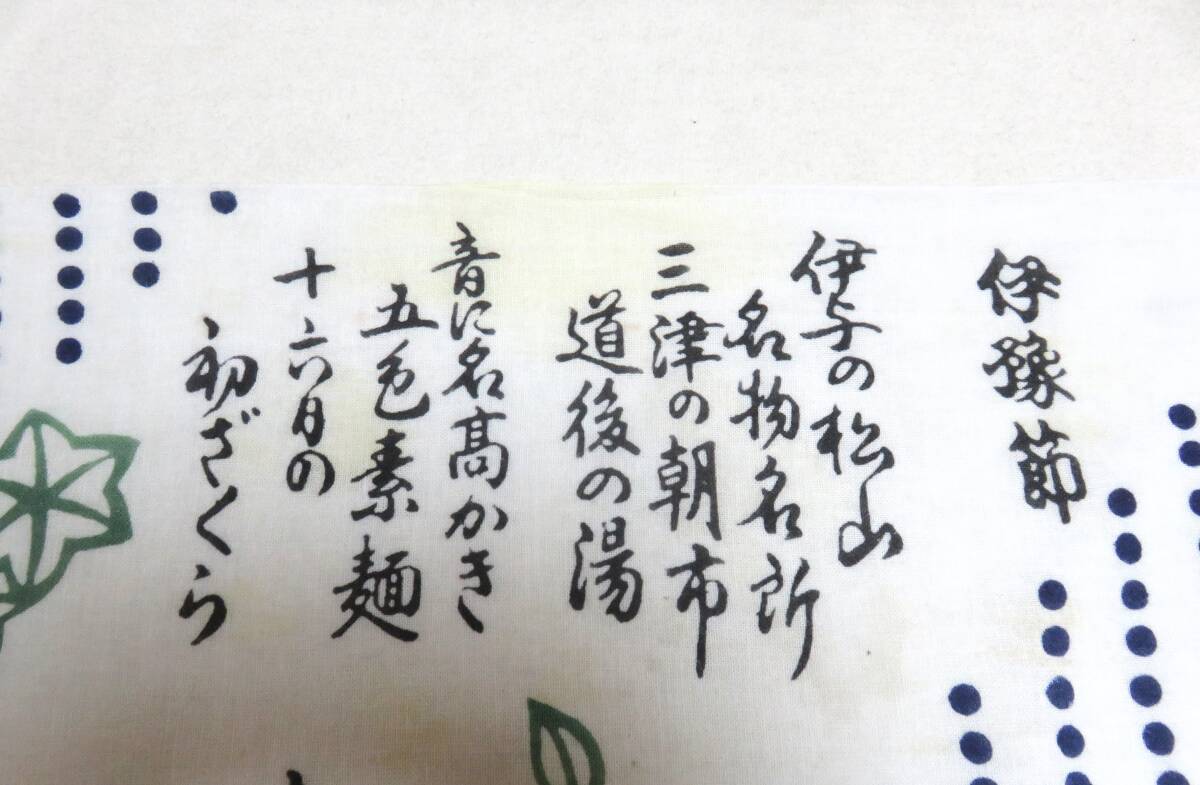 伊豫節
伊与の松山
名物名所
三津の朝市
道後の湯
音に名高かき
五色素麺
十六日の
初ざくら